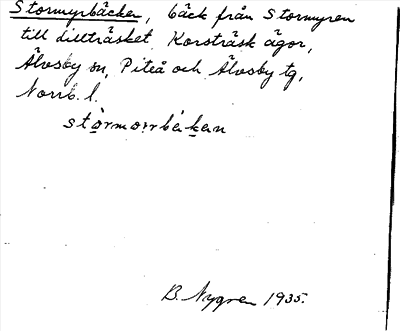 Stormyrbäcken, bäck från Stormyren
till Lillträsket. Korsträsk ägor,
Älvsby sn, Piteå och Älvsby tg,
Norrb. l.
stòrmọrrbákan
B. Nygren 1935.